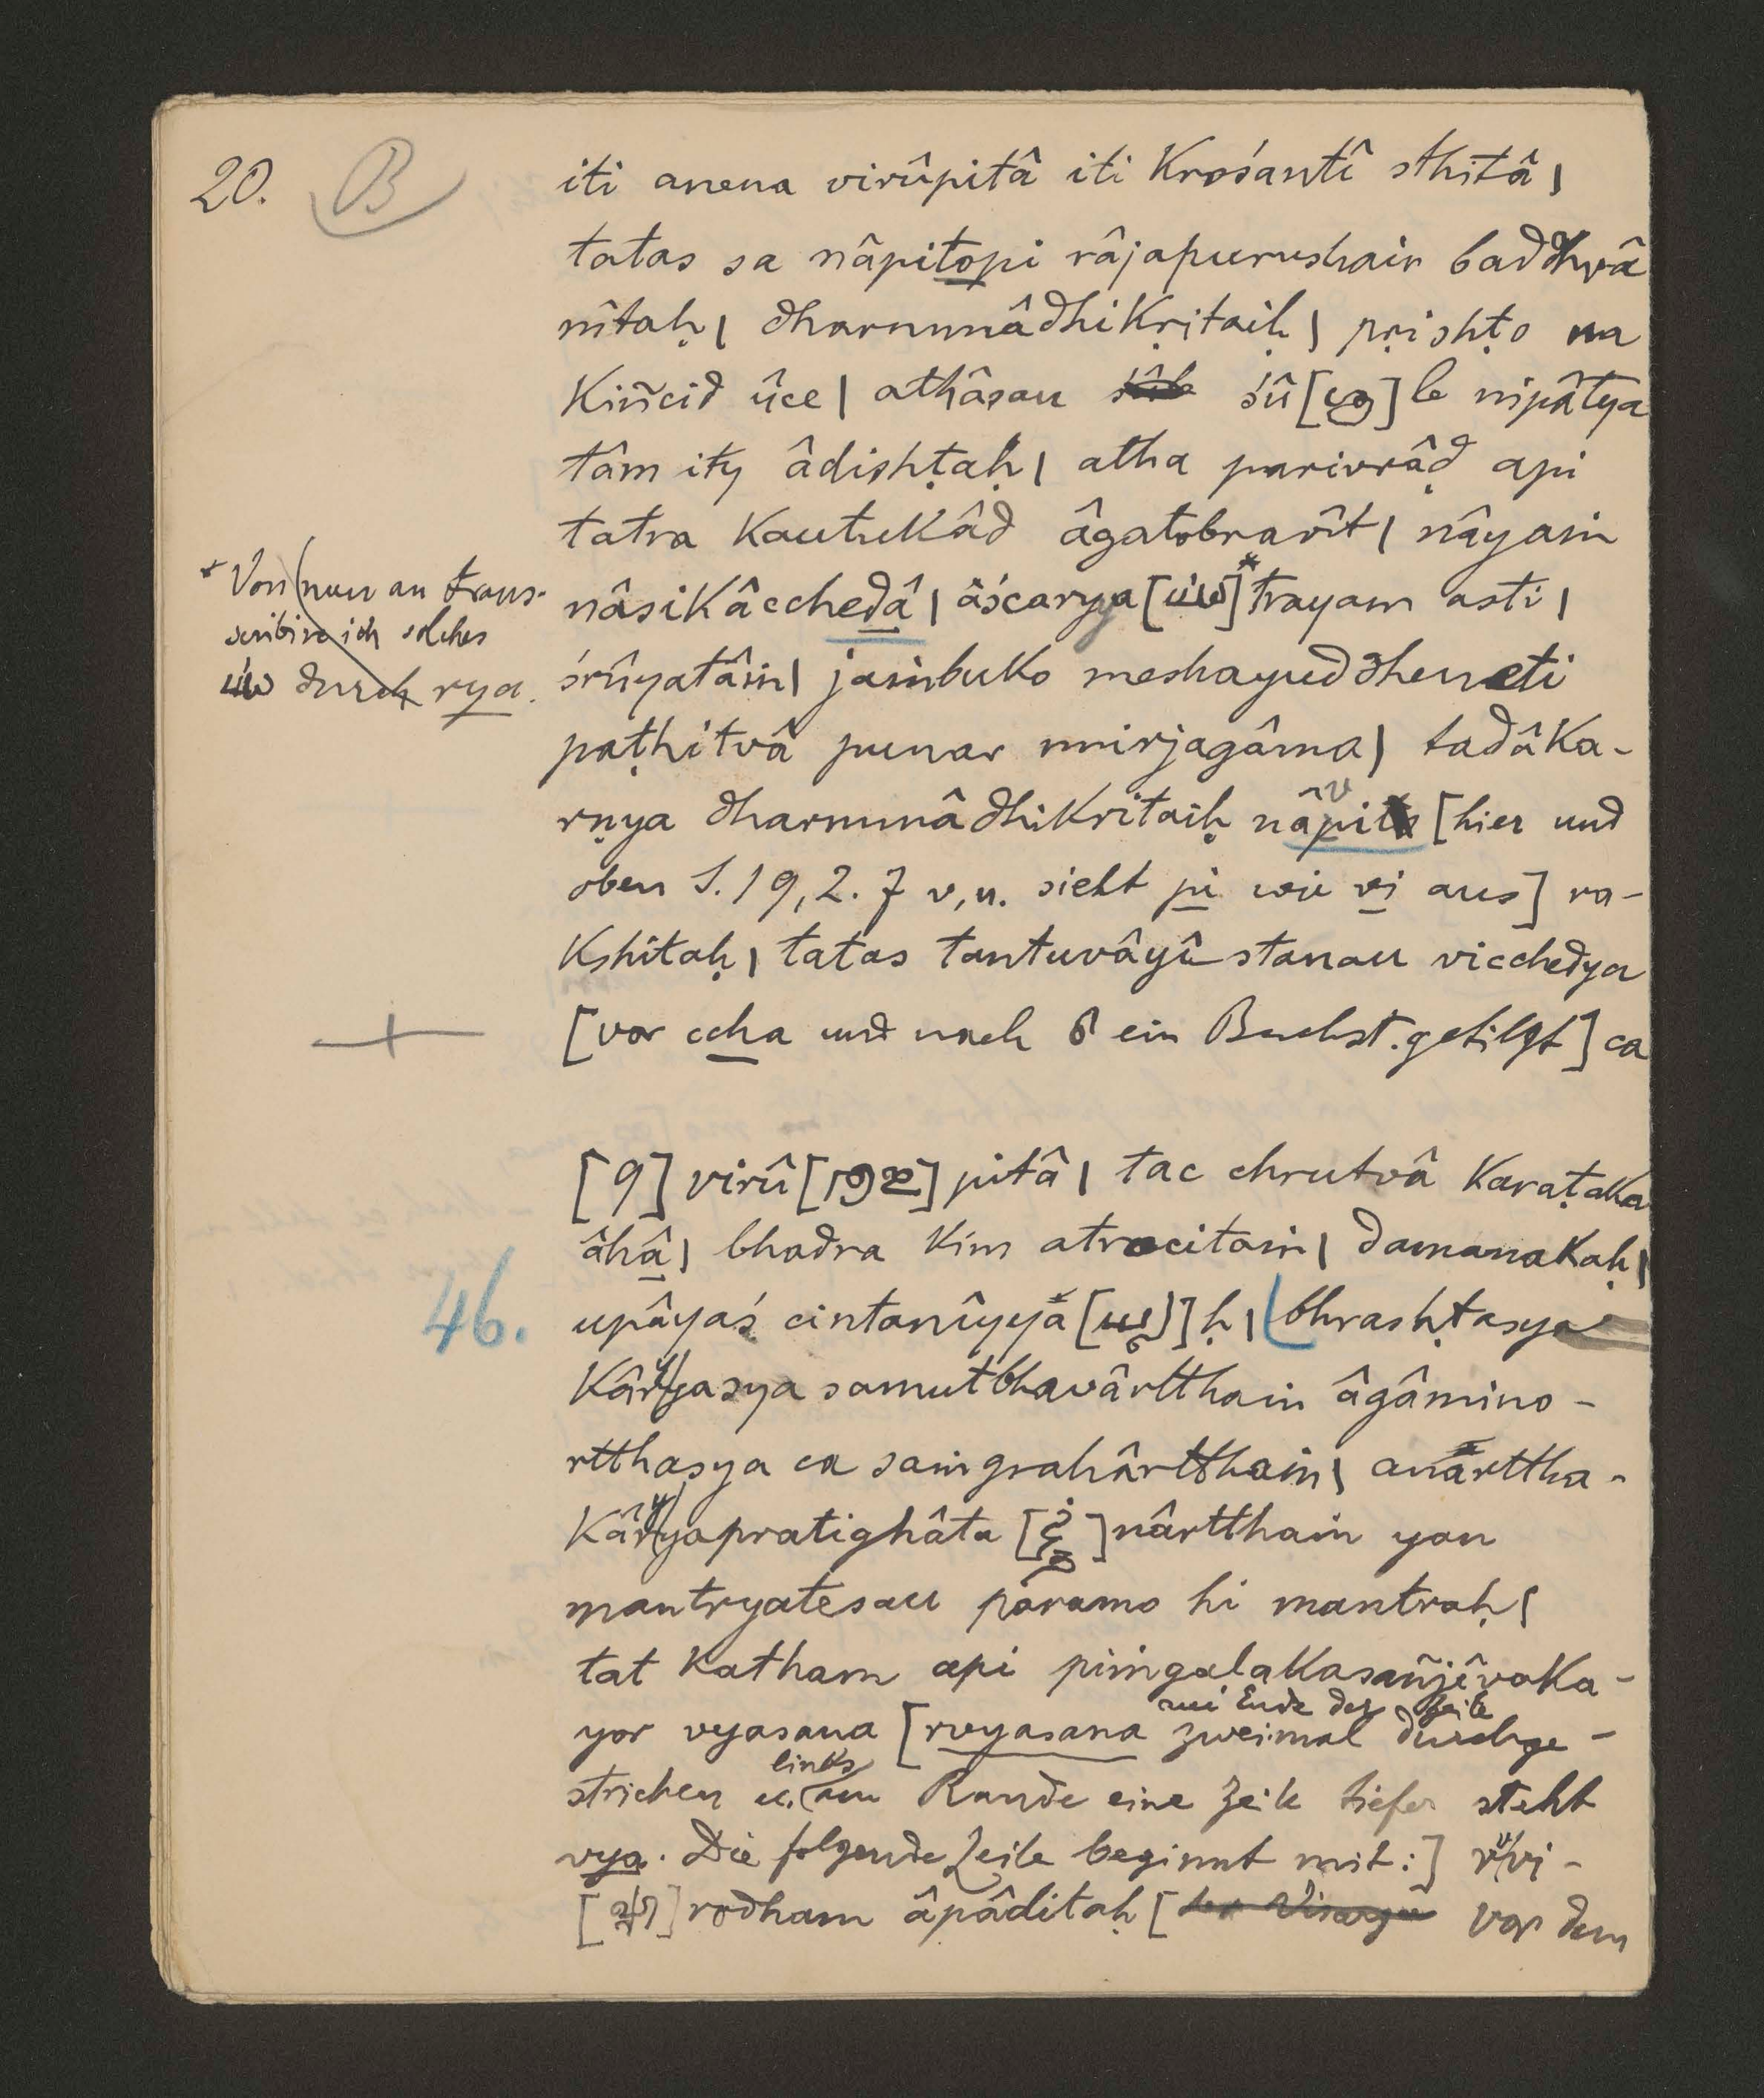 20. B
iti anena virûpitâ iti krośantî sthitâ|
tatas sa nâpitopi râjapurushair baddhvâ
nîtaḥ| dharmmâdhikṛitaiḥ| pṛishṭo na
kiñcid ûce| athâsau śûle śû[ ]le nipâtya
tâm ity âdishṭaḥ| atha parivrâḍ api
tatra kautukâd âgatobravît| nâyaṁ
nâsikâcchedâ| âścarya[ ]*trayam asti|
* Von nun an trans-
scribire ich solches
durch rya.
śrûyatâṁ| jaṁbuko meshayuddheneti
paṭhitvâ punar nnirjagâma| tadâka-
rṇya dharmmâdhikritaiḥ nâpita [hier und
oben S. 19, Z. 7 v. u. sieht pi wie vi aus] ra-
kshitaḥ| tatas tantuvâyî stanau vicchedya
[vor ccha und nach ein Buchst. getilgt] ca
[9] virû[ ]pitâ| tac chrutvâ karaṭaka
âhâ| bhadra kim atrocitaṁ| damanakaḥ|
46.
upâyaś cintanîyya[ ]ḥ| bhrashṭasya
kâryyasya samutbhavârtthaṁ âgâmino-
rtthasya ca saṁgrahârtthaṁ| anarttha-
kâryyapratighâta[ ]nârtthaṁ yan
mantryatesau paramo hi mantraḥ|
tat katham api piṁgalakasañjîvaka-
yor vyasana [rvyasana zweimal durchge-
am Ende der Zeile
strichen u. links am Rande eine Zeile tiefer steht
vya. Die folgende Zeile beginnt mit:] vvi-
[ ]rodham âpâditaḥ [der Visarga vor dem